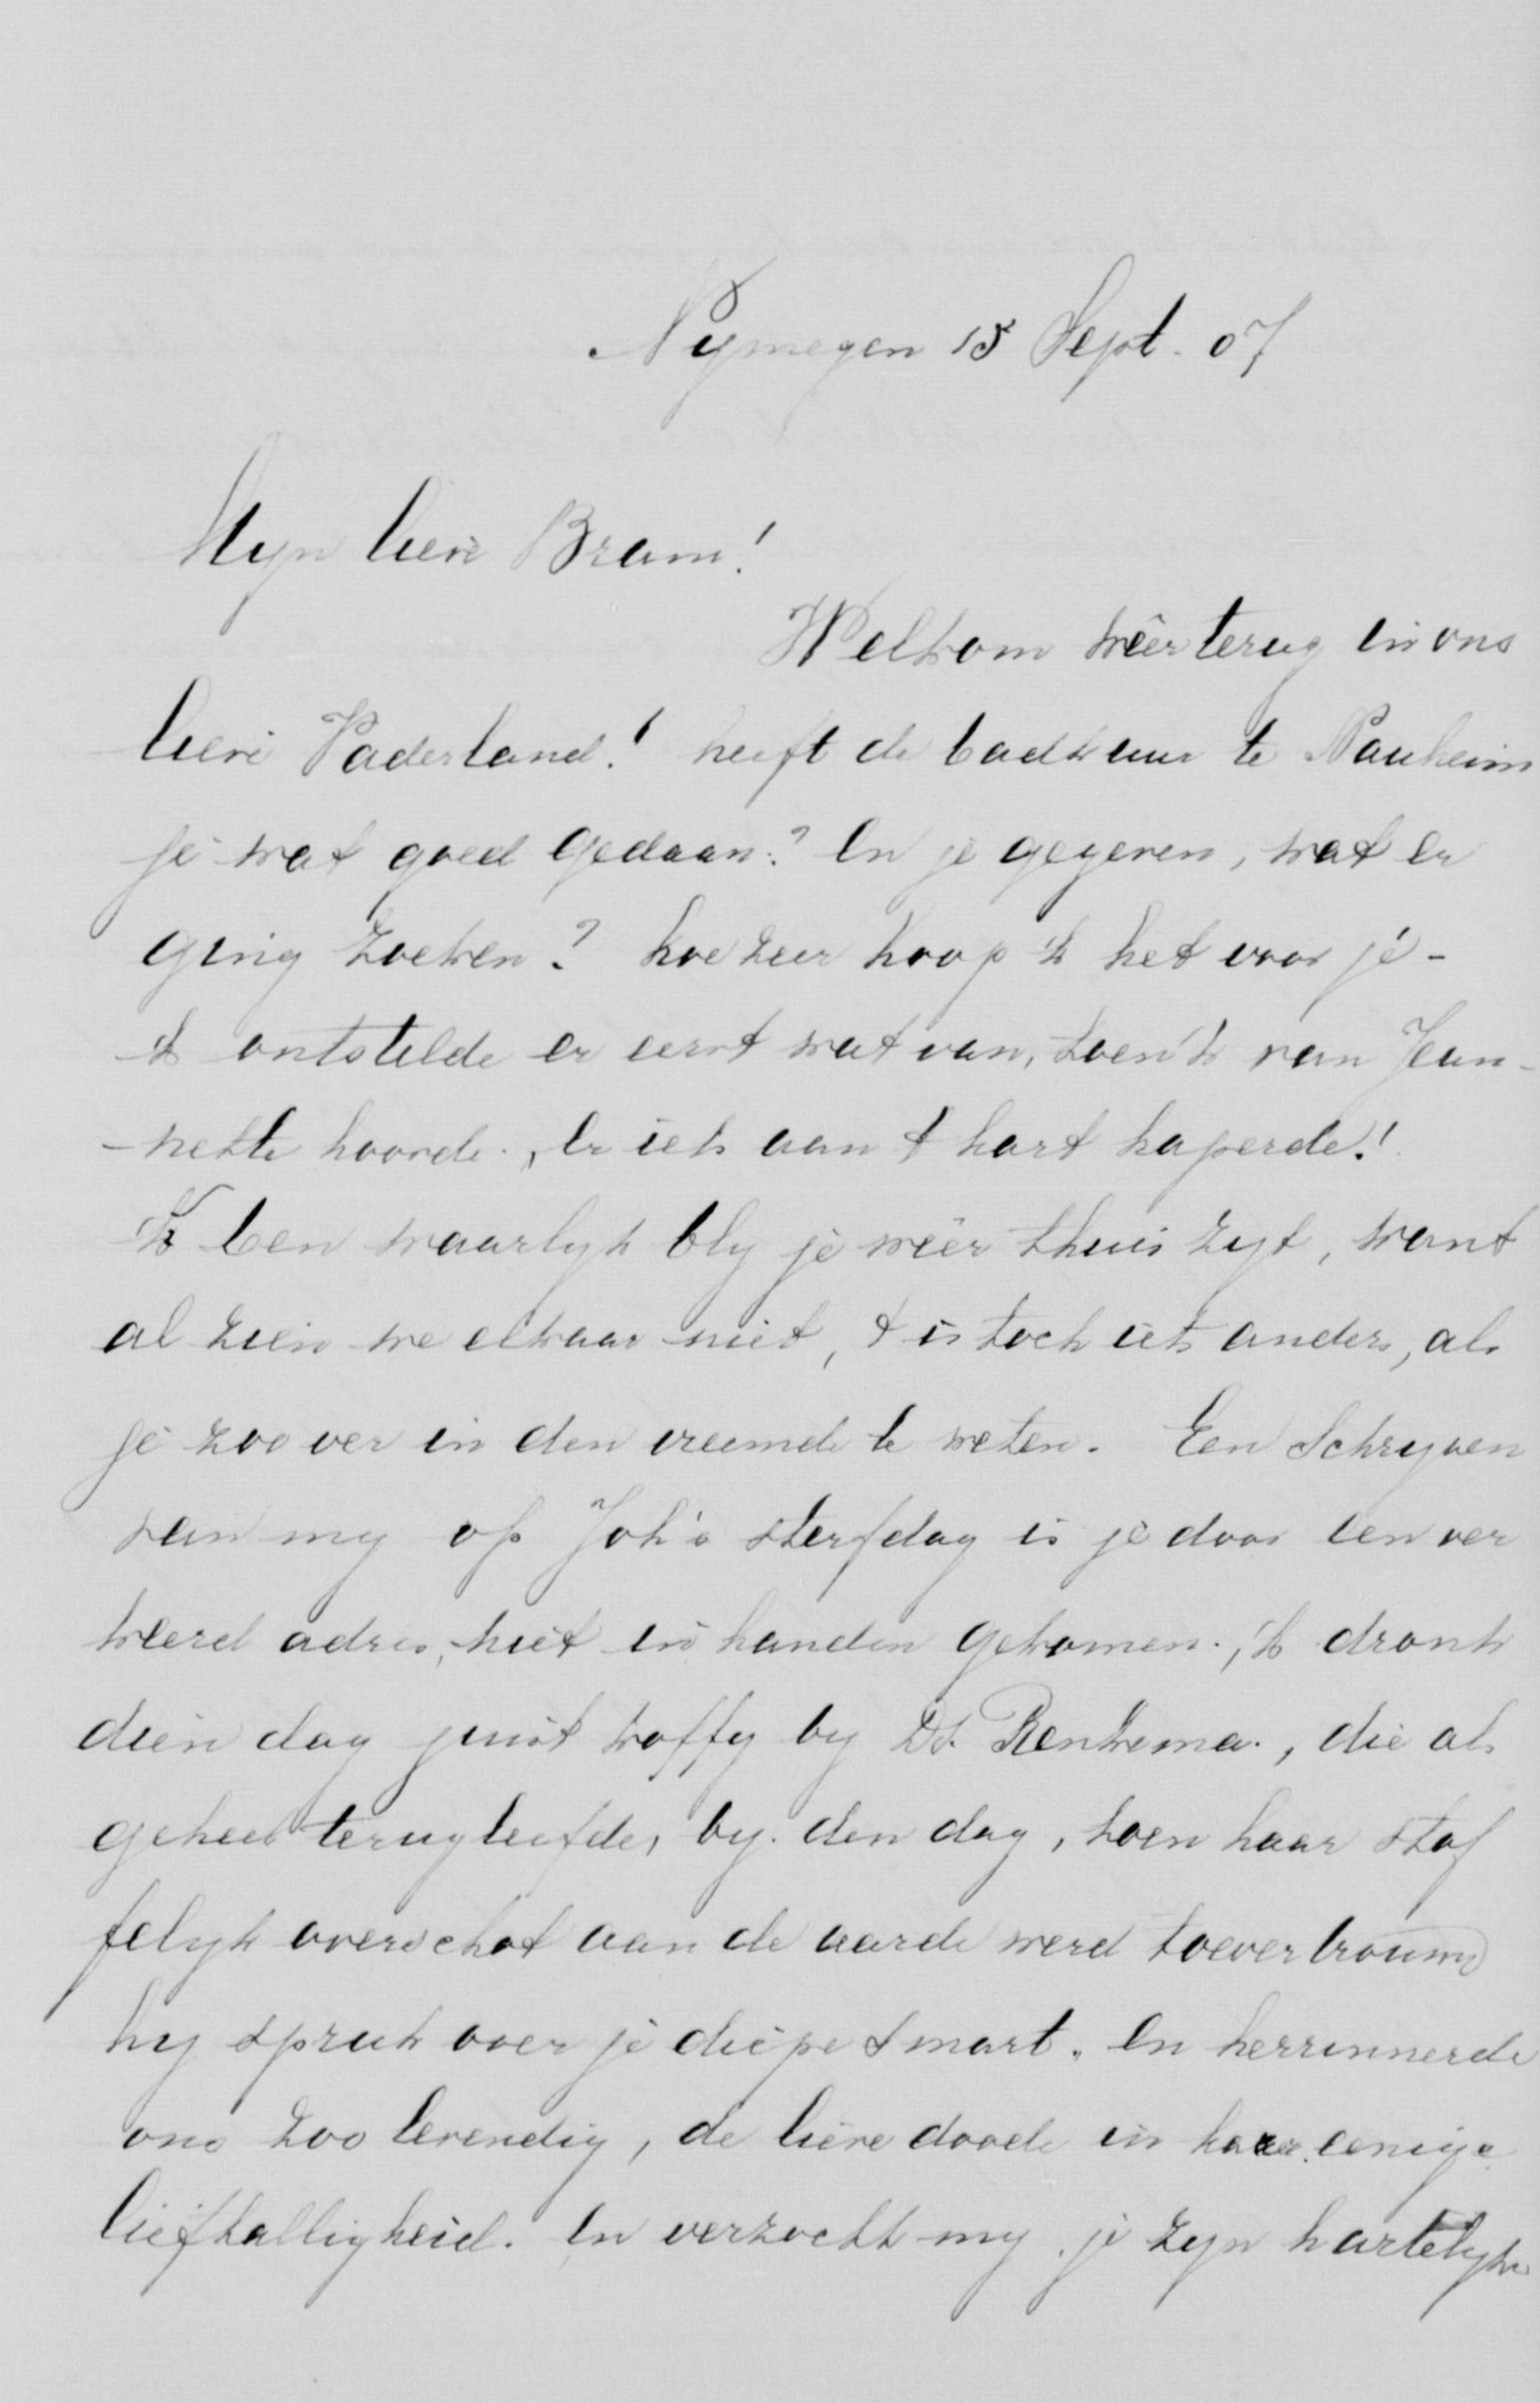 Nymegen 15 Sept. 07
Myn lieve Bram!
Welkom wêer terug in ons
lieve Vaderland! heeft de badkuur te Nauheim
je wat goed gedaan? En je gegeven, wat er
ging zoeken? hoe zeer hoop 'k het voor je -
'k ontstelde er eerst wat van, toen 'k van Jean-
-nette hoorde, er iets aan 't hart haperde!
'k ben waarlyk bly je wêer thuis zyt, want
al zien we elkaar niet, 't is toch iets anders, als
je zoo ver in den vreemde te weten. Een Schryven
van my op Joh's sterfdag is je door een ver
keerd adres, niet in handen gekomen., 'k dronk
dien dag juist koffy by Ds. Renkema., die als
geheel terugleefde, by den dag, toen haar stof
felyk overschot aan de aarde werd toevertrouwd
hy sprak over je diepe smart. En herrinnerde
ons zoo levendig, de lieve doode in haar eenige
lieftalligheid. En verzocht my je zyn hartelyke